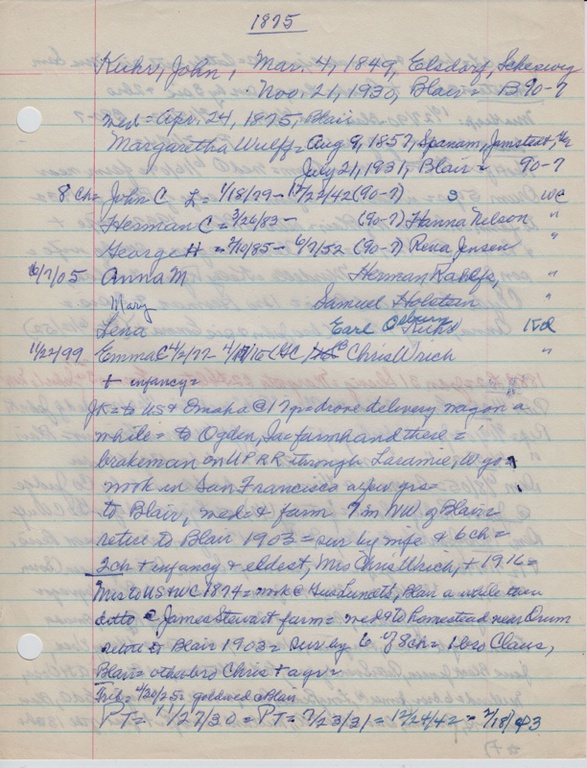 1875
Kuhr, John, Mar. 4, 1849, Elsdorf, Scheswig
Nov. 21, 1930, Blair = B90-7
med = Apr. 24, 1875, Blair
Margaretha Wulff = Aug 9, 1857, Spanam, Jamstedt,
July 21, 1931, Blair = 90-7
8 ch = John C L = 1/18/79 - 12/22/42 (90-7) S WC
Herman C = 3/26/83 - (90-7) Hanna Nelson "
George H = 2/10/85 - 6/7/52 (90-7) Reva Jensen "
6/7/05 Anna M Herman Rahlfs, "
Mary Samuel Holstein "
Lena Earl Osburn Kuhr
11/22/99 Emma C 4/2/77 Chris Wrich "
+ infancy =
JK = to US & Omaha @ 17 yo drove delivery wagon a
while = to Ogden, Ia farmhand there =
brakeman on UPRR through Laramie, Wyo =
work in San Francisco a few yrs =
to Blair, med = & farm 7 m NW of Blair =
retire to Blair 1903 = sur by wife & 6 ch =
2 ch + infancy & eldest, Mrs Chris Wrich, + 1916 =
Mrs to US & WC 1874 = work @ Lundts, Blair a while then
ditto @ James Stewart farm = med & to homestead near Orum
retire to Blair 1903 = sur by 6 of 8 ch = 1 bro Claus,
Blair = other bro Chris + ago =
Trib = 4/20/25 = golden wed @ Blair
PT = 11/27/30 = PT = 7/23/31 = 12/24/42 =